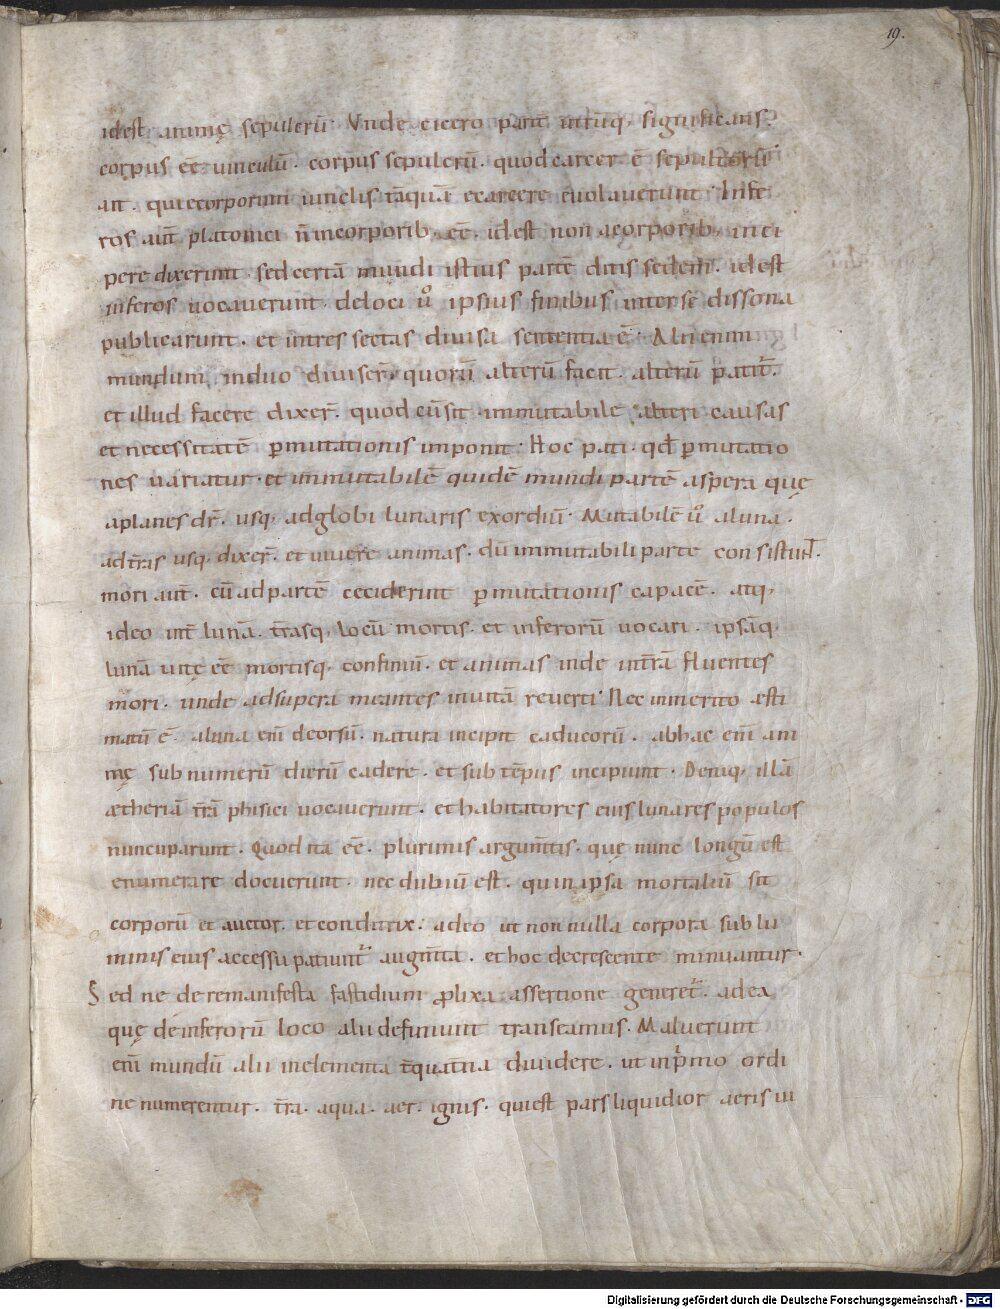 19.
idest animę sepulcrū Vnde cicero parit̄ utrūq; significans
corpus eē uinculū. corpus sepulcrū. quod carcer ē sepultorū
ait. qui ecorporum uinclis tāquā ecarcere euolauerunt. Infe
ros aūt platonici n̄ incorporib; eē. idest non acorporib; inci
pere dixerunt. sed certā mundi istius partē ditis sedem. idest
inferos uocauerunt. deloci u͛o ipsius finibus inter sē dissona
publicarunt. et intres sectas diuisa sententia ē. Alii enim
mundum induo diuiser̄. quorū alterū facit. alterū patit͛.
et illud facere dixer̄. quod cū sit immutabile alteri causas
et necessitatē ꝑmutationis imponit. Hoc pati. qđ ꝑmutatio
nes uariatur. et immutabilē quidē mundi partē aspera quę
aplanes dr̄. usq; adglobi lunaris exordiū. Mutabilē u͛o aluna.
ad tr̄as usq; dixer̄. et uiuere animas. dū immutabili parte consistunt.
mori aūt. cū ad partē ceciderint ꝑmutationis capacē. atq;
ideo int̄ lunā. tr̄asq; locū mortis. et inferorū uocari. ipsāq;
lunā uitę eē mortisq; confiniū. et animas inde int̄rā fluentes
mori. unde adsupera meantes inuitā reuerti Nec inmerito æsti
matū ē. aluna enī deorsū. natura incipit caducorū. abhac enī ani
mę sub numerū dierū cadere. et sub tēpus incipiunt. Deniq; illā
ætheriā tr̄ā phisici uocauerunt. et habitatores eius lunares populos
nuncuparunt. Quod ita eē. plurimis argum̄tis. quę nunc longū est
enumerare docuerunt. nec dubiū est. quin ipsa mortaliū sit
corporū et auctor. et conditrix. adeo ut non nulla corpora sub lu
minis eius accessu patiunt͛ augm̄ta. et hoc decrescente minuantur.
Sed ne de re manifesta fastidium ꝓlixa assertione generet͛. ad ea
quę de inferorū loco alii definiunt transeamus. Maluerunt
enī mundū alii inelementa t̄quat̄na diuidere. ut inpͥmo ordi
ne numerentur. tr̄a. aqua. aer. ignis. qui est pars liquidior aeris ui
Digitalisierung gefördert durch die Deutsche Forschungsgemeinschaft - DFG